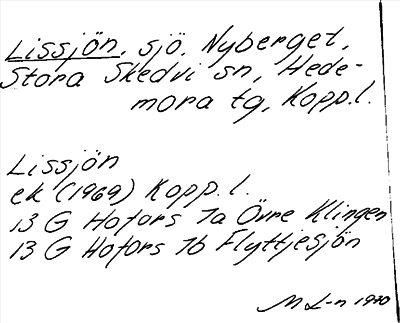 Lissjön, sjö, Nyberget,
Stora Skedvi sn, Hede-
mora tg, Kopp.l.
Lissjön
ek (1969) Kopp.l.
13 G Hofors 7a Övre Klingen
13 G Hofors 7b Flyttjesjön
M L-n 1970